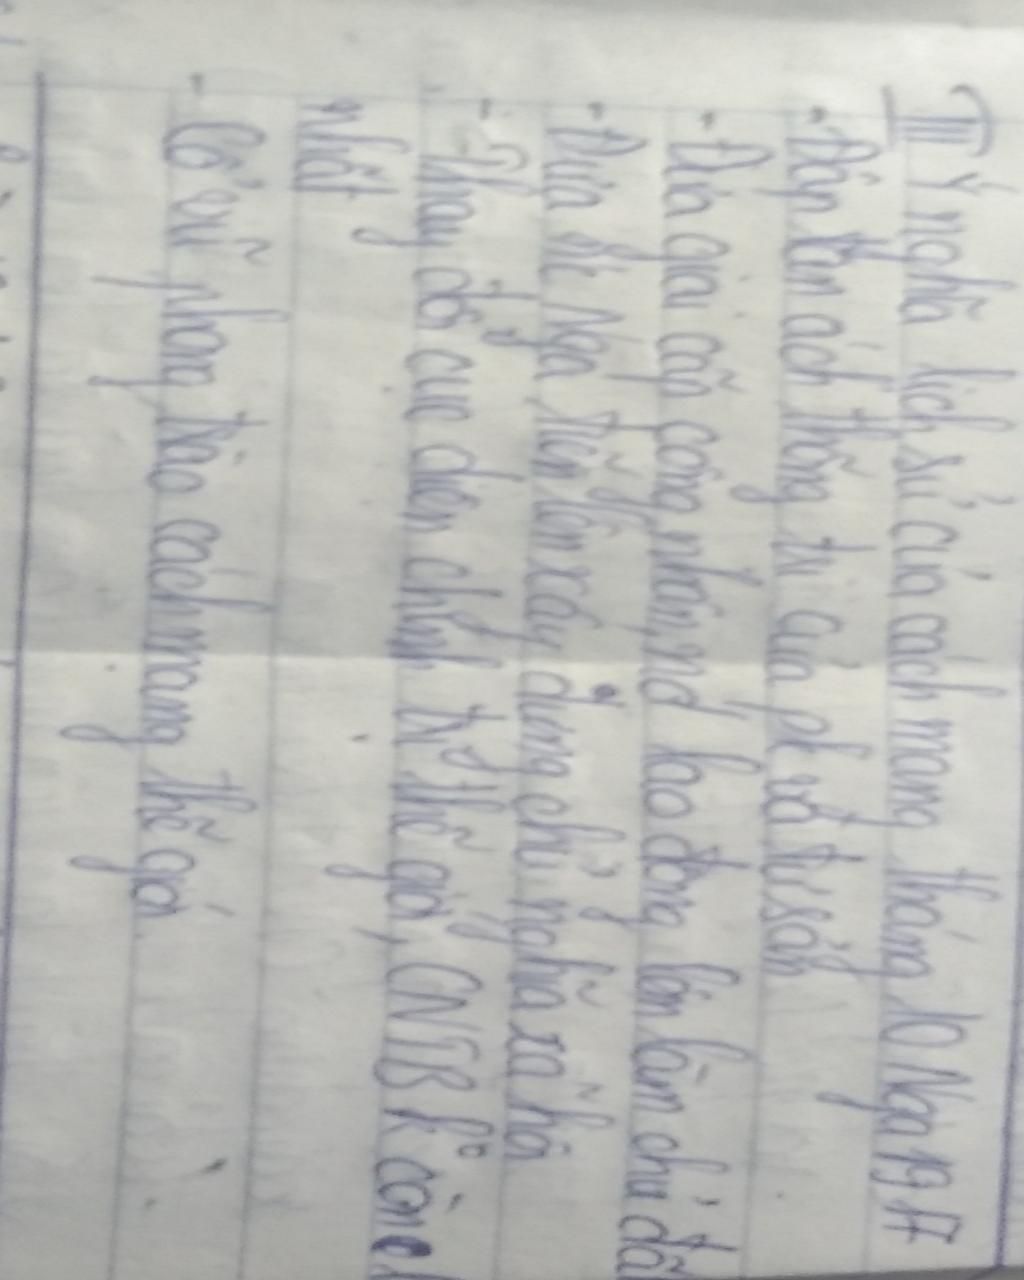 III Ý nghĩa lịch sử của cách mạng tháng 10 Nga 1917
- Đập tan ách thống trị của pk và tư sản
- Đưa giai cấp công nhân, nd lao động lên làm chủ đất
- Đưa nc Nga tiến lên xây dựng chủ nghĩa xã hội
- Thay đổi cục diện chính trị thế giới, CNTB ko còn
nhất
- Cổ vũ phong trào cách mạng thế giới